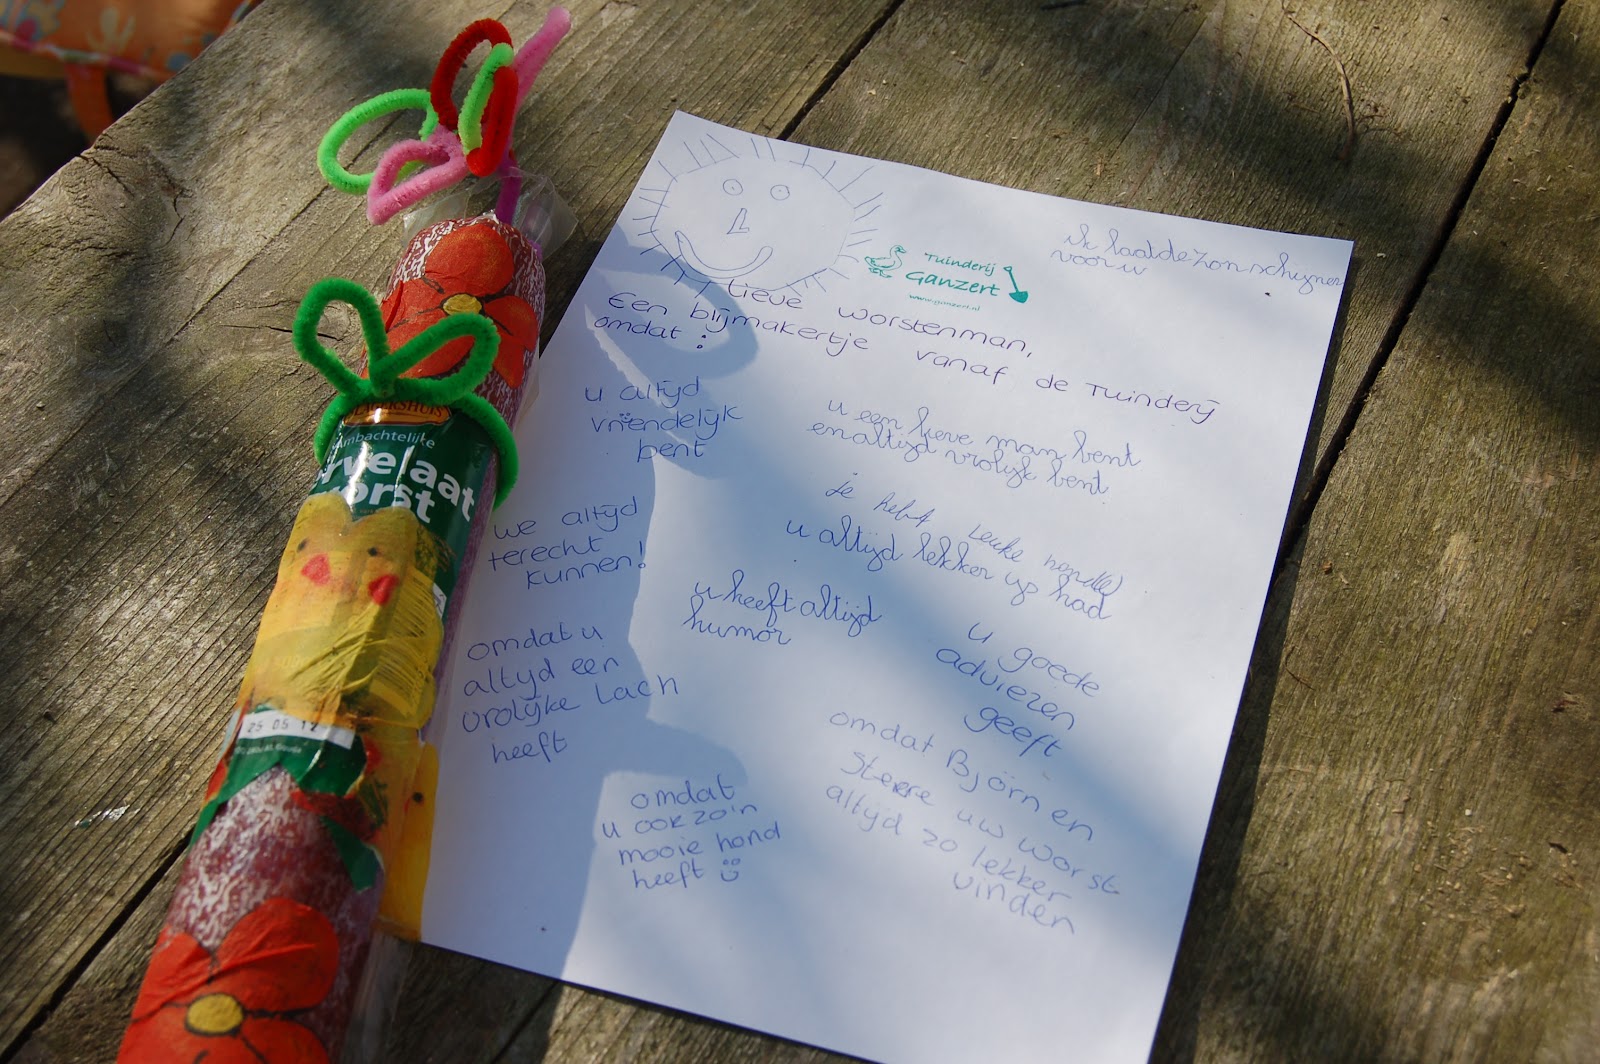 ik laat de zon schijnen
voor u
Tuinderij
Ganzert
www.ganzert.nl
Lieve worstenman,
Een blijmakertje vanaf de Tuinderij
omdat:
u altijd
vriendelijk
bent
u een lieve man bent
en altijd vrolijk bent
je hebt leuke hond(e)
u altijd lekker up had
we altijd
terecht
kunnen!
u heeft altijd
humor
u goede
adviezen
geeft
omdat u
altijd een
vrolijke lach
heeft
omdat Björn en
Steere uw worst
altijd zo lekker
vinden
omdat
u ook zo'n
mooie hond
heeft
Ambachtelijke
rvelaat
worst
05 05 12